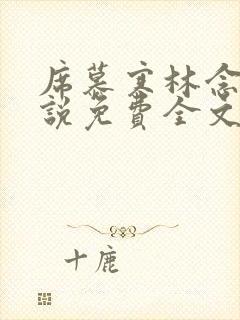 席慕寒林念
說免費全文
十鹿